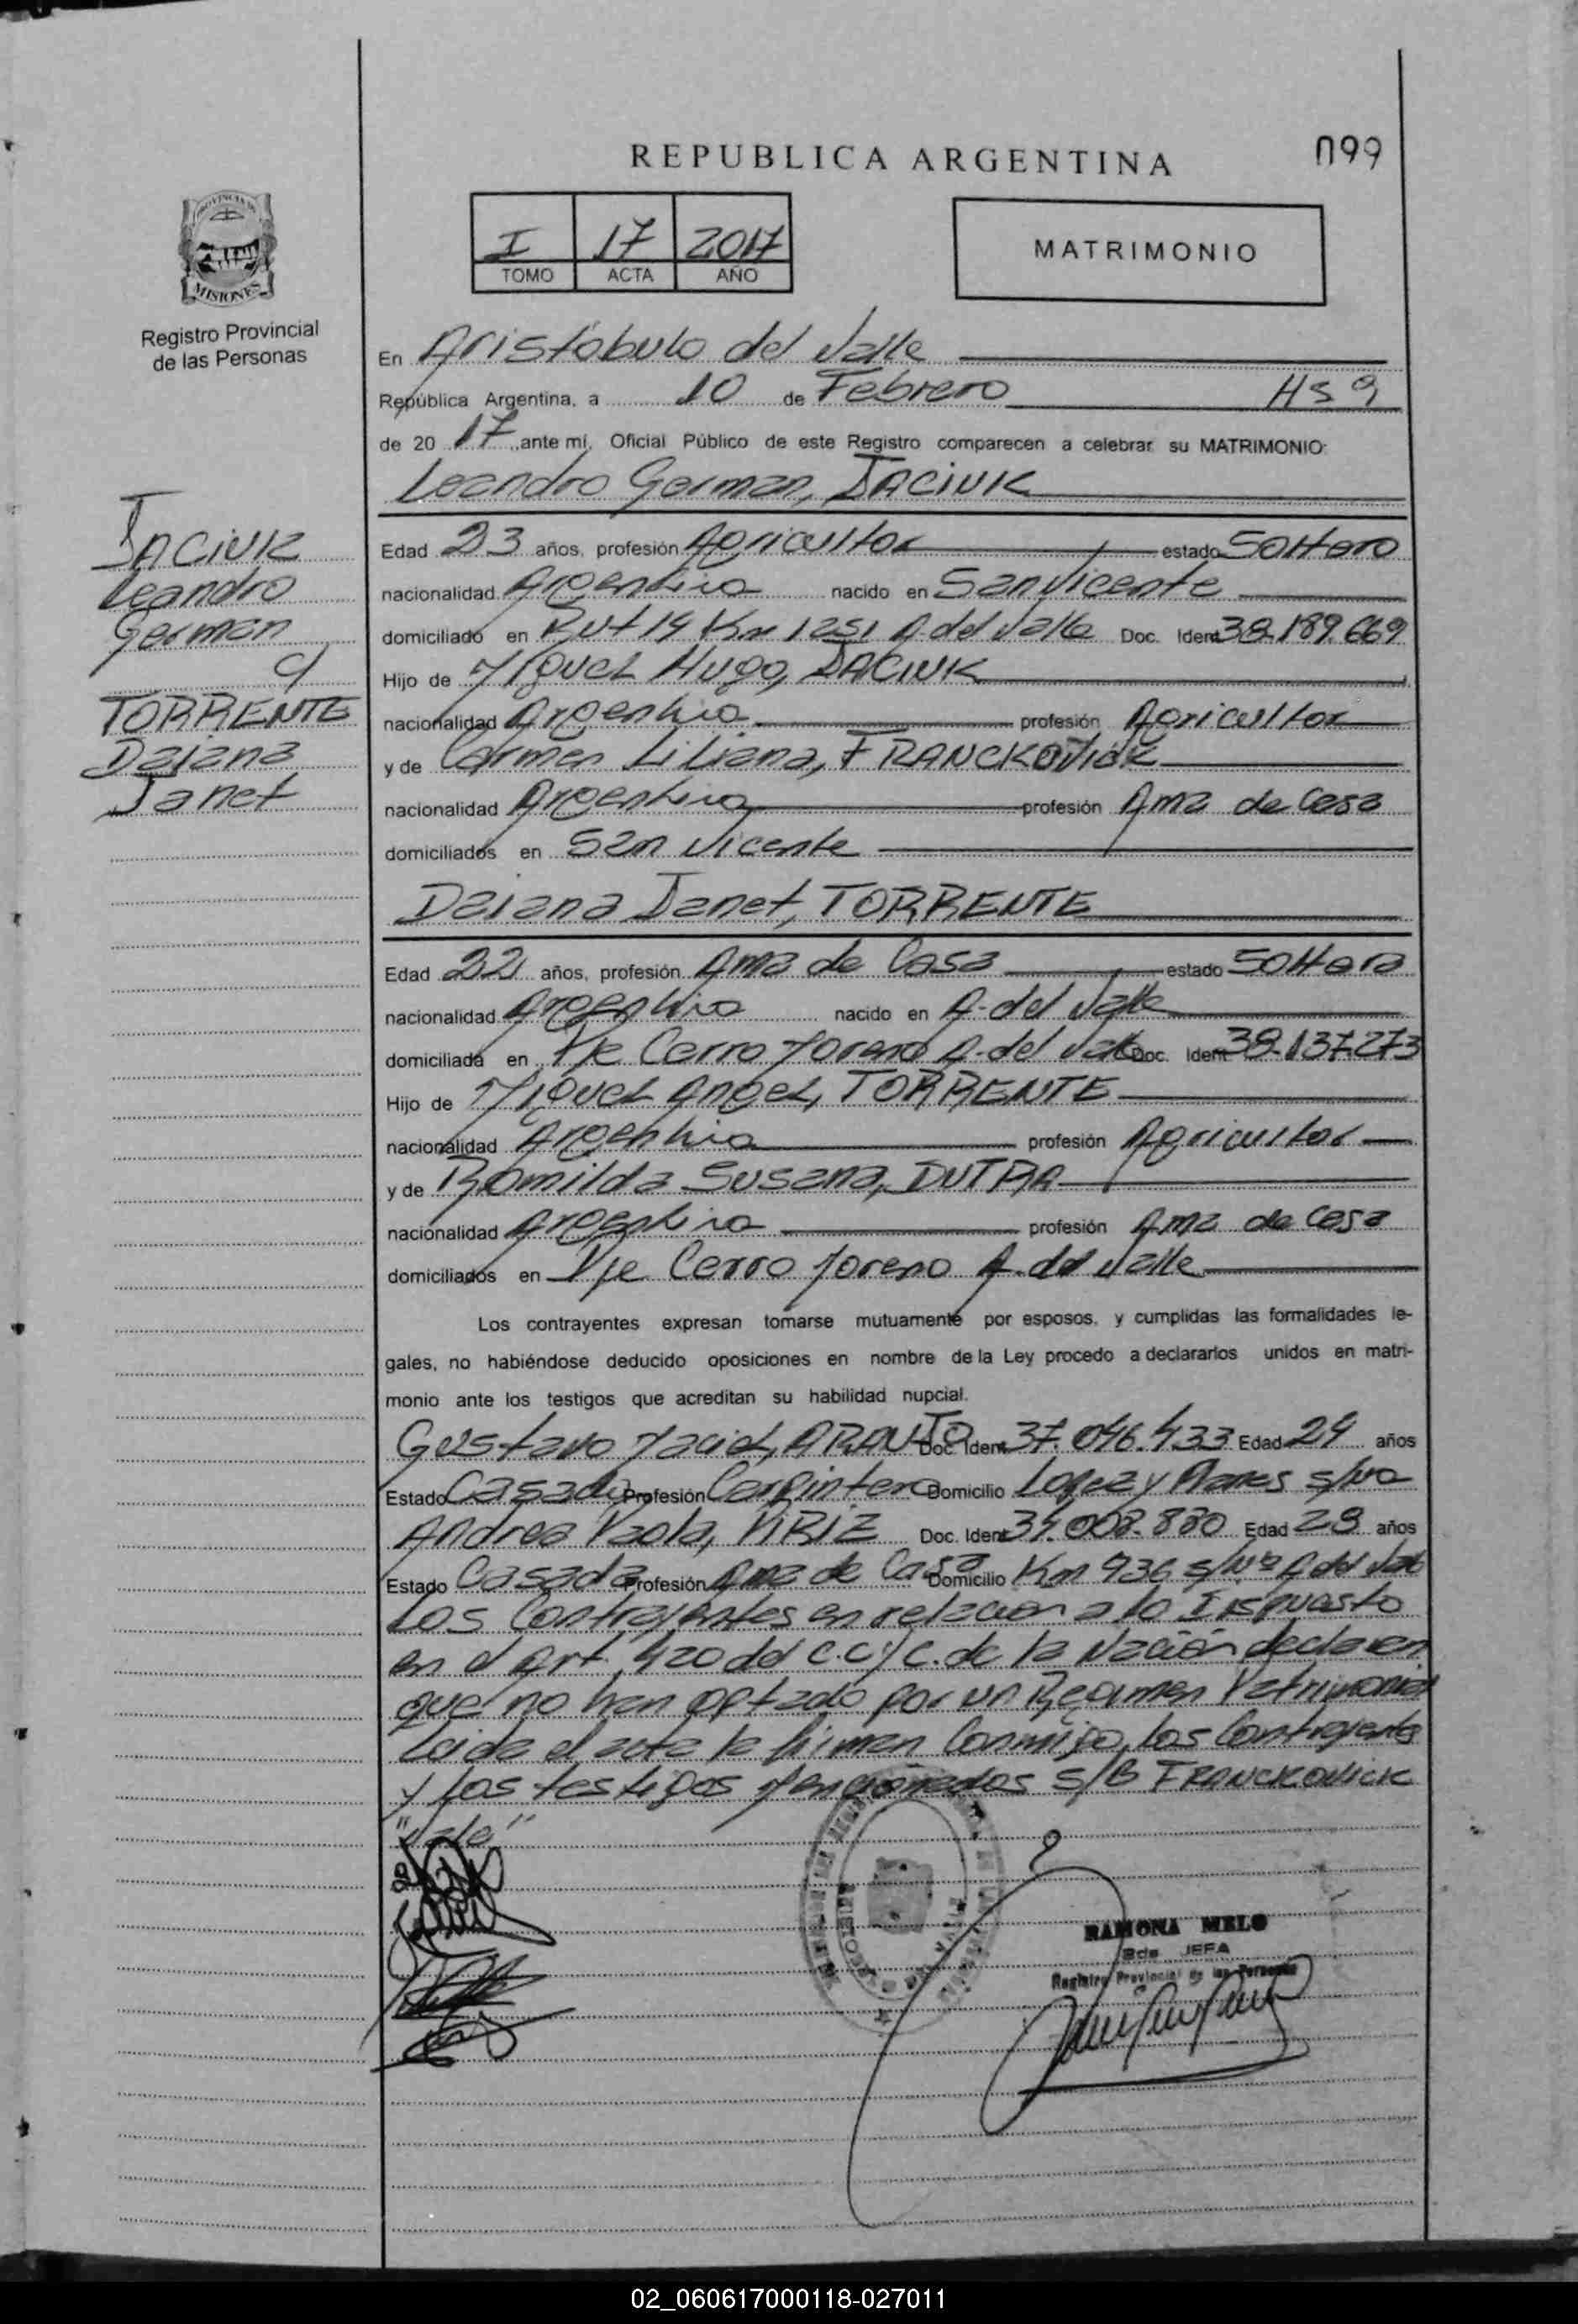 REPUBLICA ARGENTINA
099
I 17 2017
TOMO ACTA AÑO
MATRIMONIO
PROVINCIA DE
MISIONES
Registro Provincial
de las Personas
En Aristóbulo del Valle
República Argentina, a 10 de Febrero Hs 9
de 20 17 ante mí, Oficial Público de este Registro comparecen a celebrar su MATRIMONIO:
Leandro German, JACIUK
JACIUK
Leandro
German
c/
TORRENTE
Daiana
Janet
Edad 23 años, profesión Agricultor estado Soltero
nacionalidad Argentina nacido en San Vicente
domiciliado en Rut 14 Km 1251 A. del Valle Doc. Ident. 38.189.669
Hijo de Miguel Hugo, JACIUK
nacionalidad Argentina profesión Agricultor
y de Carmen Liliana, FRANCKOVICK
nacionalidad Argentina profesión Ama de Casa
domiciliados en San Vicente
Daiana Janet, TORRENTE
Edad 22 años, profesión Ama de Casa estado Soltera
nacionalidad Argentina nacido en A. del Valle
domiciliada en Pje Cerro Moreno A. del Valle Doc. Ident. 38.137.273
Hijo de Miguel Angel, TORRENTE
nacionalidad Argentina profesión Agricultor
y de Romilda Susana, DUTRA
nacionalidad Argentina profesión Ama de Casa
domiciliados en Pje Cerro Moreno A. del Valle
Los contrayentes expresan tomarse mutuamente por esposos, y cumplidas las formalidades le-
gales, no habiéndose deducido oposiciones en nombre de la Ley procedo a declararlos unidos en matri-
monio ante los testigos que acreditan su habilidad nupcial.
Gustavo Maciel, ARAUJO Doc. Ident. 37.046.433 Edad 24 años
Estado Casado Profesión Carpintero Domicilio Lopez y Planes s/no
Andrea Paola, Doc. Ident. 34.008.830 Edad 28 años
Estado Casada Profesión Ama de Casa Domicilio Km 936 s/Nº A del Valle
Los Contrayentes en relacion a lo Dispuesto
en el Art. 420 del C.C y C. de la Nación declaran
que no han optado por un Regimen Patrimonial
Leida el acta la firman Conmigo, los Contrayentes
y los testigos Mencionados S/B FRANCKOVICK
"Vale"
RAMONA MELO
2da JEFA
Registro Provincial de las Personas
02_060617000118-027011